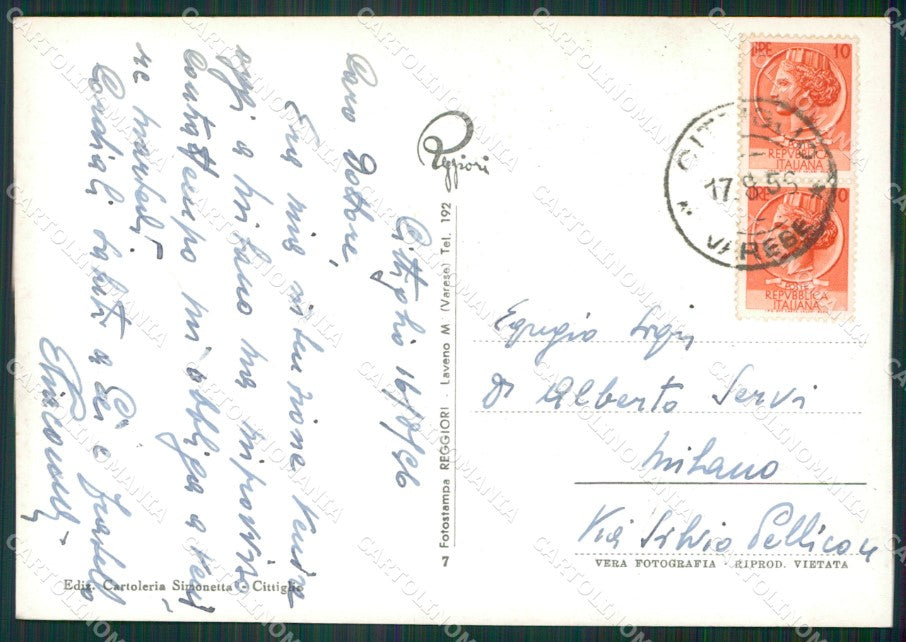 Cittiglio 16/8/56
Caro Dottore,
Era mia intenzione venire
oggi a Milano ma improvviso
contrattempo mi obbliga a
Cordiali saluti a Lei e fratello
Reggiori
Fotostampa REGGIORI - Laveno M (Varese) Tel. 192
7
Ediz. Cartoleria Simonetta - Cittiglio
10
POSTE
REPVBBLICA
ITALIANA
CITTIGLIO
17.8.56
VARESE
POSTE
REPVBBLICA
ITALIANA
Egregio Sigr
Dr Alberto Servi
Milano
Via Silvio Pellico 4
VERA FOTOGRAFIA - RIPROD. VIETATA
CARTOLINOMANIA